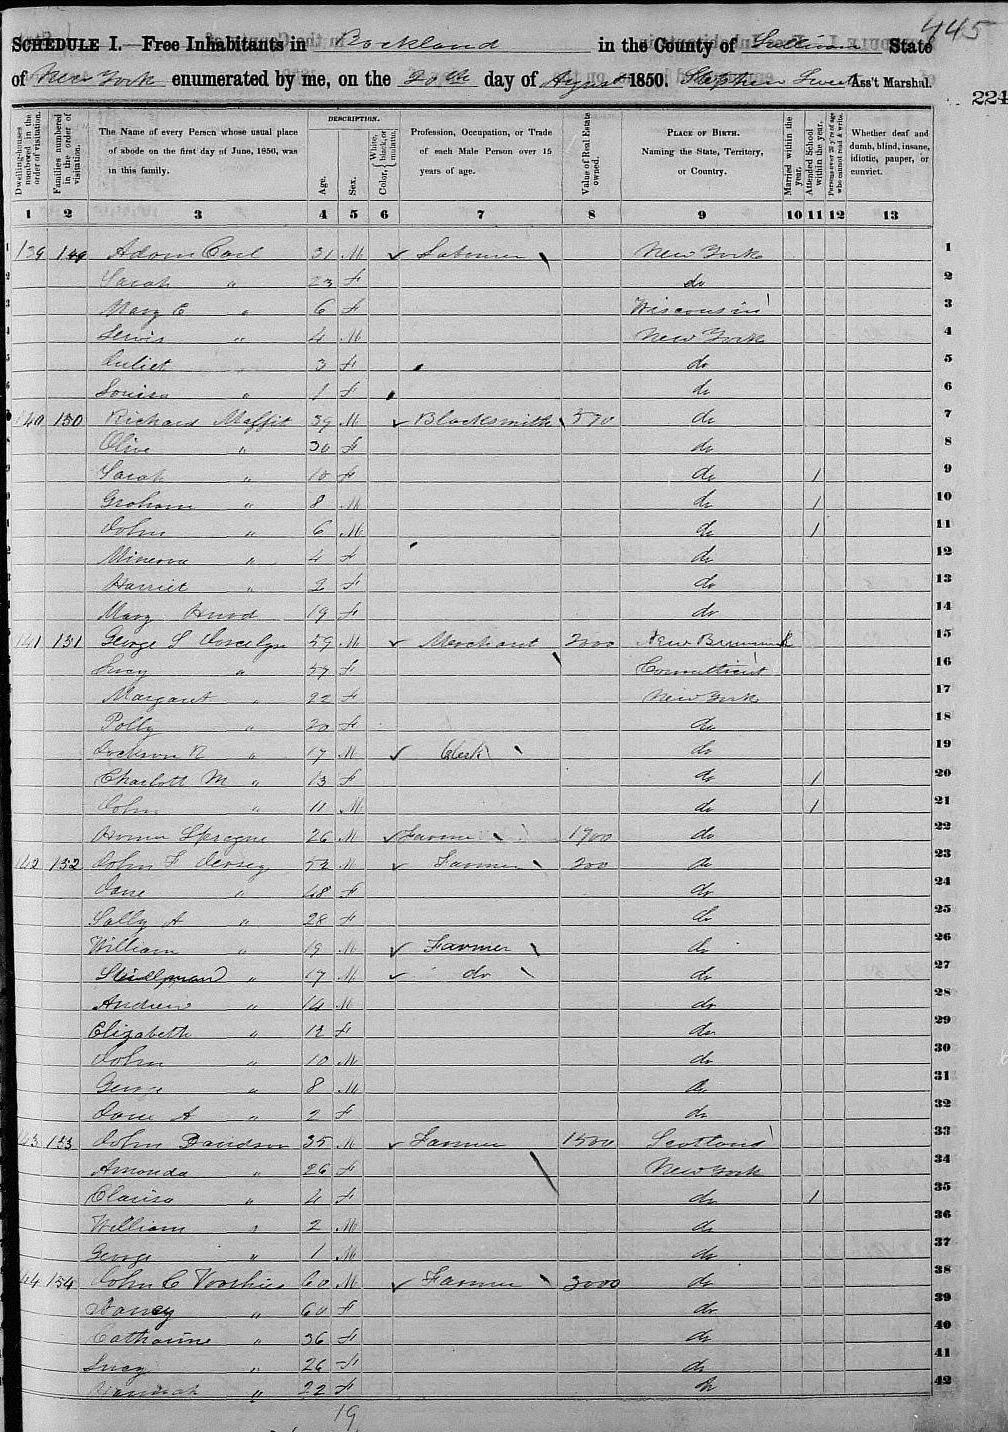 445
SCHEDULE I. Free Inhabitants in Rockland in the County of Sullivan State
of New York enumerated by me, on the 20th day of August 1850. Stephen Sweet Ass't Marshal.
224
Dwelling-houses numbered in the order of visitation.
Families numbered in the order of visitation.
The Name of every Person whose usual place of abode on the first day of June, 1850, was in this family.
DESCRIPTION.
Age.
Sex.
Color, { White, black, or mulatto.
Profession, Occupation, or Trade of each Male Person over 15 years of age.
Value of Real Estate owned.
PLACE OF BIRTH. Naming the State, Territory, or Country.
Married within the year.
Attended School within the year.
Persons over 20 y'rs of age who cannot read & write.
Whether deaf and dumb, blind, insane, idiotic, pauper, or convict.
1 2 3 4 5 6 7 8 9 10 11 12 13
1 139 149 Adam Carl 31 M Laborer New York 1
2 Sarah " 23 F do 2
3 Mary E " 6 F Wisconsin 3
4 Lewis " 4 M New York 4
5 Juliet 3 F do 5
6 Louisa " 1 F do 6
140 150 Richard Maffit 39 M Blacksmith 570 do 7
8 Olive " 30 F do 8
9 Sarah " 10 F do 1 9
Graham " 8 M do 1 10
John " 6 M do 1 11
Minerva " 4 F do 12
Harriet " 2 F do 13
Mary 19 F do 14
141 151 George S Joscelyn 59 M Merchant 2000 New Brunswick 15
Lucy " 57 F Connecticut 16
Margaret " 22 F New York 17
Polly " 20 F do 18
Jackson R " 17 M Clerk do 19
Charlott M " 13 F do 1 20
John " 11 M do 1 21
Homer Sprague 26 M Farmer 1700 do 22
142 152 John F Dersey 52 M Farmer 200 do 23
Jane " 48 F do 24
Sally A " 28 F do 25
William " 19 M Farmer do 26
" 17 M do do 27
Andrew " 14 M do 28
Elizabeth " 12 F do 29
John " 10 M do 30
George " 8 M do 31
Jane A " 2 F do 32
43 153 John Davidson 35 M Farmer 1500 Scotland 33
Amanda " 26 F New York 34
Clarisa " 4 F do 1 35
William " 2 M do 36
George " 1 M do 37
44 154 John C Voorhies 60 M Farmer 3000 do 38
Nancy " 60 F do 39
Catharine " 36 F do 40
Lucy " 26 F do 41
Hannah " 22 F do 42
19